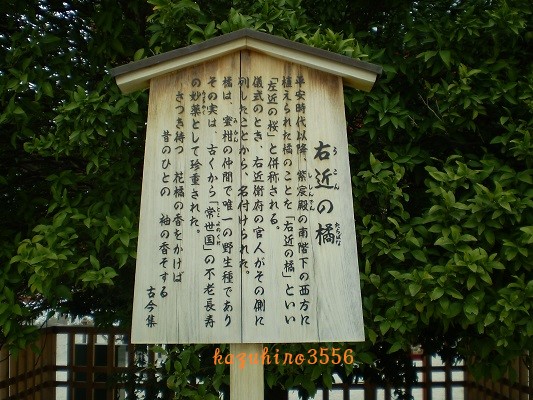 右近の橘
うこん
たちばな
平安時代以降、紫宸殿の南階下の西方に
ししんでん
植えられた橘のことを「右近の橘」といい
「左近の桜」と併称される。
儀式のとき、右近衛府の官人がその側に
列したことから、名付けられた。
橘は、蜜柑の仲間で唯一の野生種であり
みかん
その実は、古くから「常世国」の不老長寿
とこよのくに
の妙薬として珍重された。
さつき待つ 花橘の香をかげば
昔のひとの 袖の香ぞする
古今集
kazuhiro3556